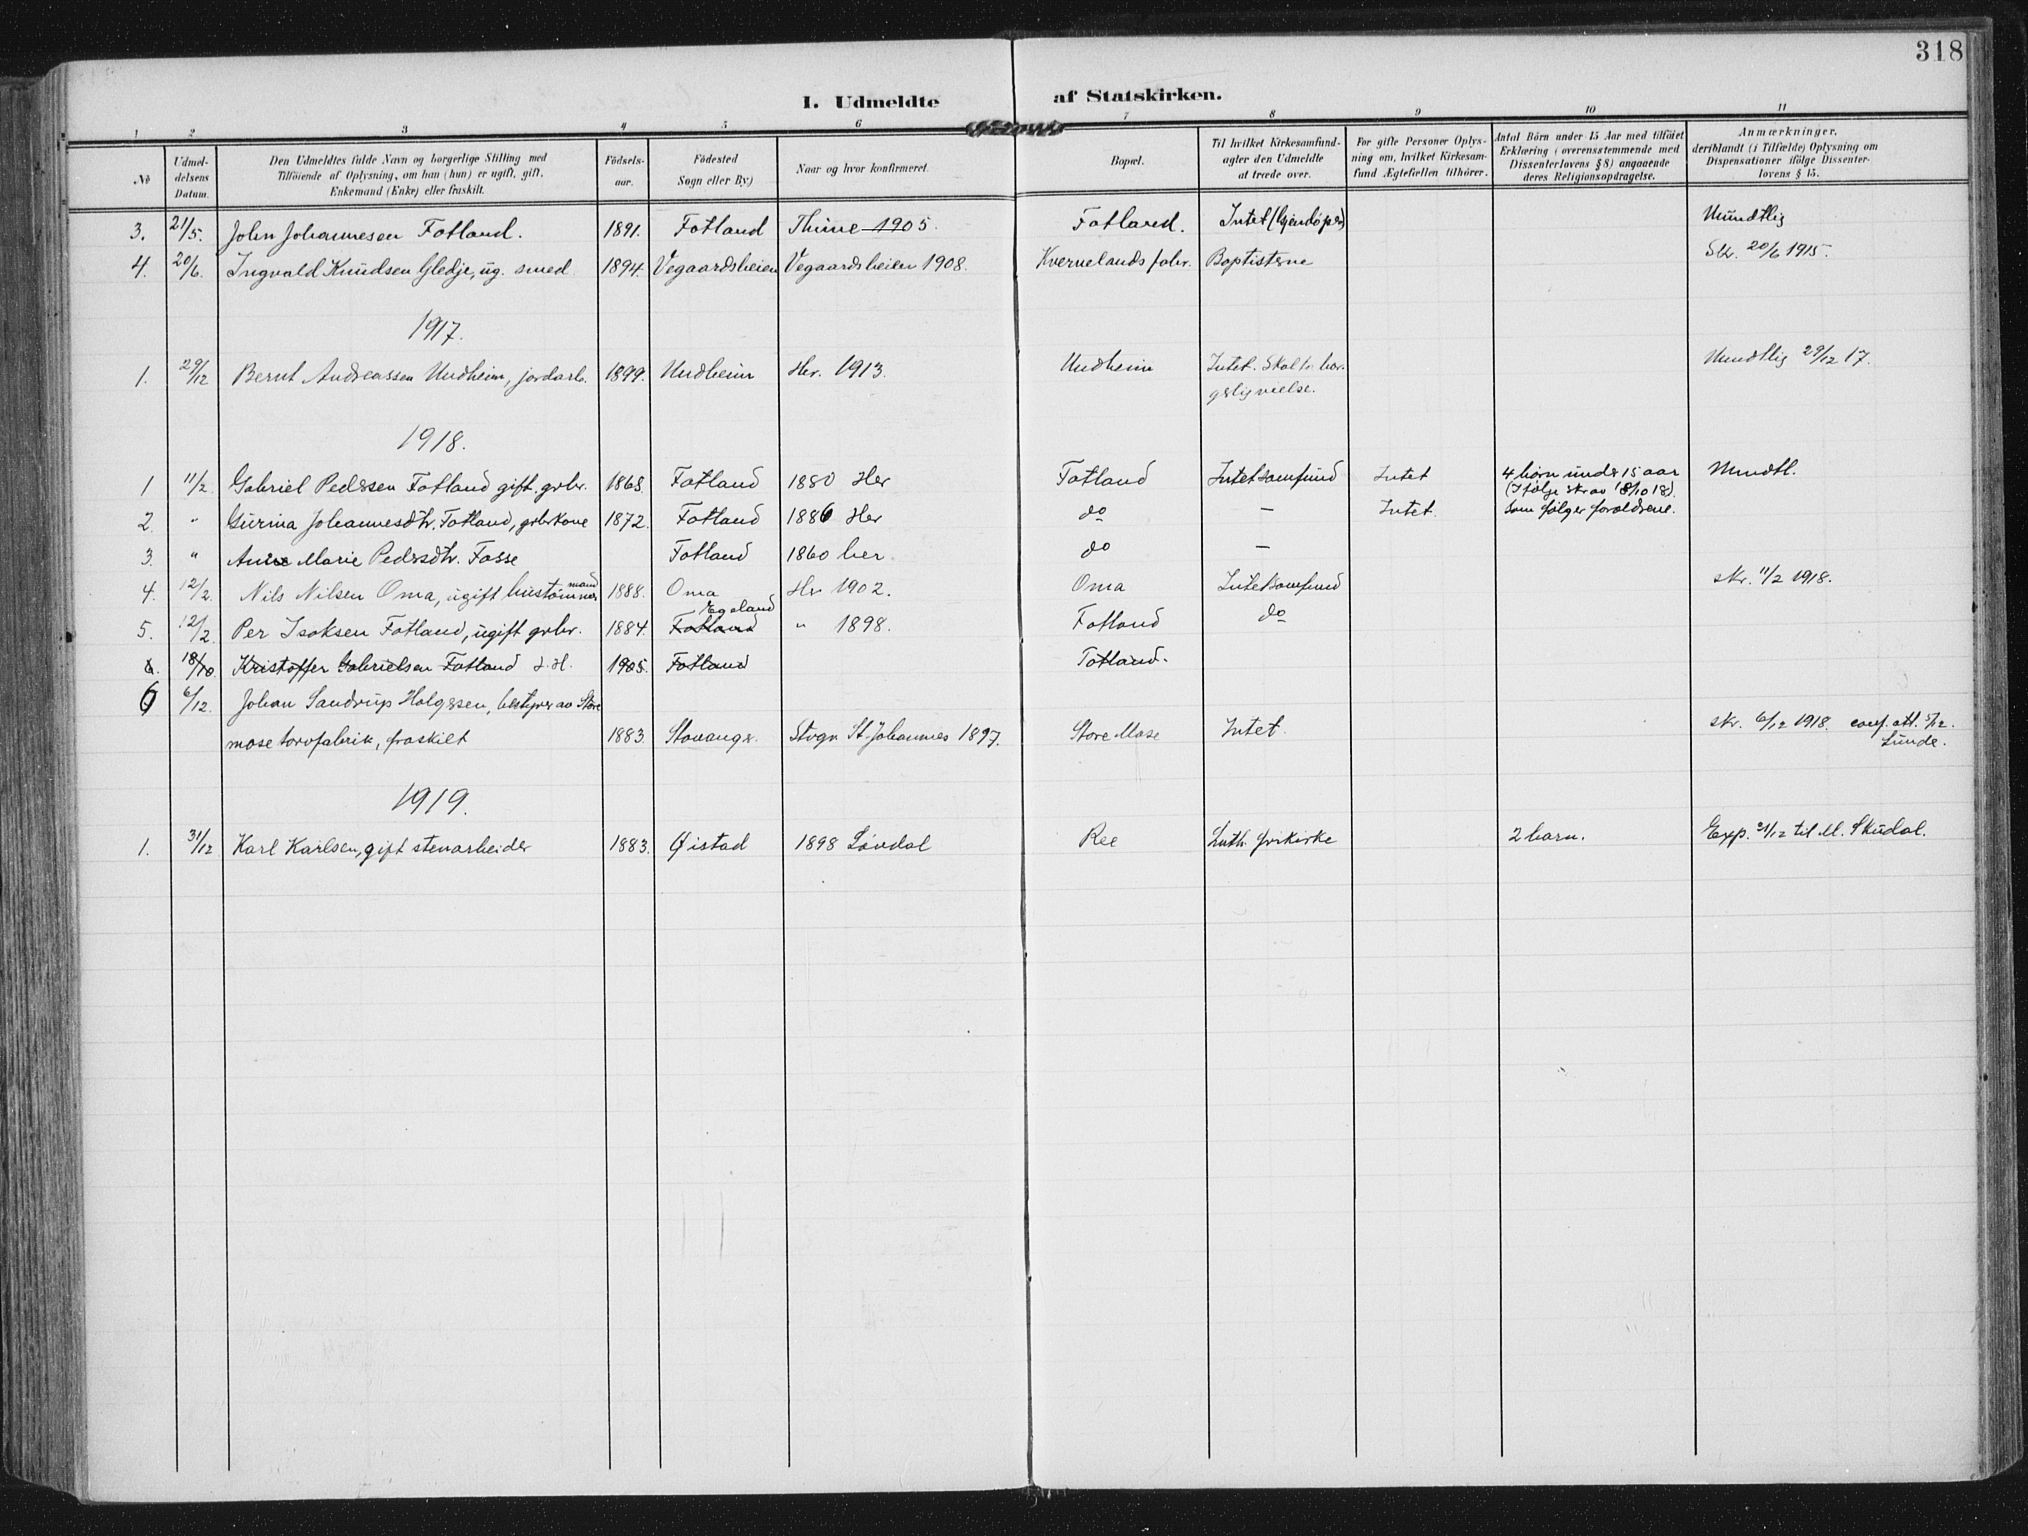 318
I. Udmeldte af Statskirken.
1 2 3 4 5 6 7 8 9 10 11
No
Udmeldelsens Datum.
Den Udmeldtes fulde Navn og borgerlige Stilling med Tilføiende af Oplysning, om han (hun) er ugift, gift, Enkemand (Enke) eller fraskilt.
Fødselsaar.
Fødested Sogn eller By.)
Naar og hvor konfirmeret.
Bopæl.
Til hvilket Kirkesamfund agter den Udmeldte at træde over.
For gifte Personer Oplysning om, hvilket Kirkesamfund Ægtefællen tilhører.
Antal Børn under 15 Aar med tilføiet Erklæring (overensstemmende med Dissenterlovens § 8) angaaende deres Religionsopdragelse.
Anmærkninger, deriblandt (i Tilfælde) Oplysning om Dispensationer ifølge Dissenterlovens § 15.
3. 21/5. John Johannesen Fotland. 1891. Fotland Thime 1905. Fotland. Intet (Gjendøper) Mündtlig
4. 20/6. Ingvald Knudsen Gledje, ug. smed. 1894. Vegaardsheien Vegaardsheien 1908. Kvernelands fabr. Baptisterne Skr. 20/6 1915.
1917.
1. 29/12 Bernt Andreassen Undheim, jordarb. 1899. Undheim Her. 1913. Undheim Intet. Skal ha borgerlig vielse. Mundtlig 29/12 17.
1918.
1 11/2. Gabriel Pedersen Fotland gift, grbr. 1868. Fotland 1880 Her Fotland Intet samfund Intet 4 børn under 15 aar Mundtl.
(Ifølge skr av 18/10 18).
2. " Gurina Johannesdtr. Fotland, grbrkone 1872. Fotland 1886 Her do — Intet. som følger forældrene.
3. " Anne Marie Pedersdtr. Fosse Fotland 1860 her do —
4. 12/2. Nils Nilsen Oma, ugift hustømmermand 1888. Oma Her 1902. Oma Intet samfund skr. 11/2 1918.
5. 12/2 Per Isaksen Fotland, ugift grbr. 1884. Fotland Egeland " 1898. Fotland do
6. 18/10 Kristoffer Gabrielsen Fotland 1905. Fotland Fotland.
6 6/12. Johan Sandrup Holgersen, bestyrer av Store
mose torvfabrik, fraskilt 1883. Stavanger. Stvgr. St. Johannes 1897. Store Mose Intet. skr. 6/12 1918. conf. att. 5/12. Lunde.
1919.
1. 31/12 Karl Karlsen, gift stenarbeider 1883. Øistad 1898 Løvdal Ree Luth. frikirke 2 barn. Exp. 31/12 til M. Skudal.